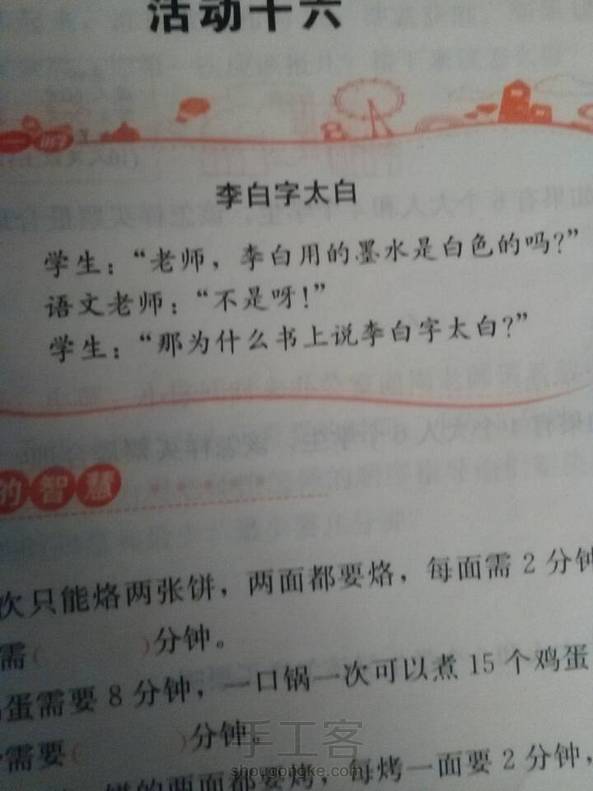 活动十六
李白字太白
学生：“老师，李白用的墨水是白色的吗？”
语文老师：“不是呀！”
学生：“那为什么书上说李白字太白？”
的智慧
次只能烙两张饼，两面都要烙，每面需2分钟
需（　　）分钟。
蛋需要8分钟，一口锅一次可以煮15个鸡蛋
需要（　　）分钟。
饼的两面都要烤，每烤一面要2分钟，
手工客
shougongke.com